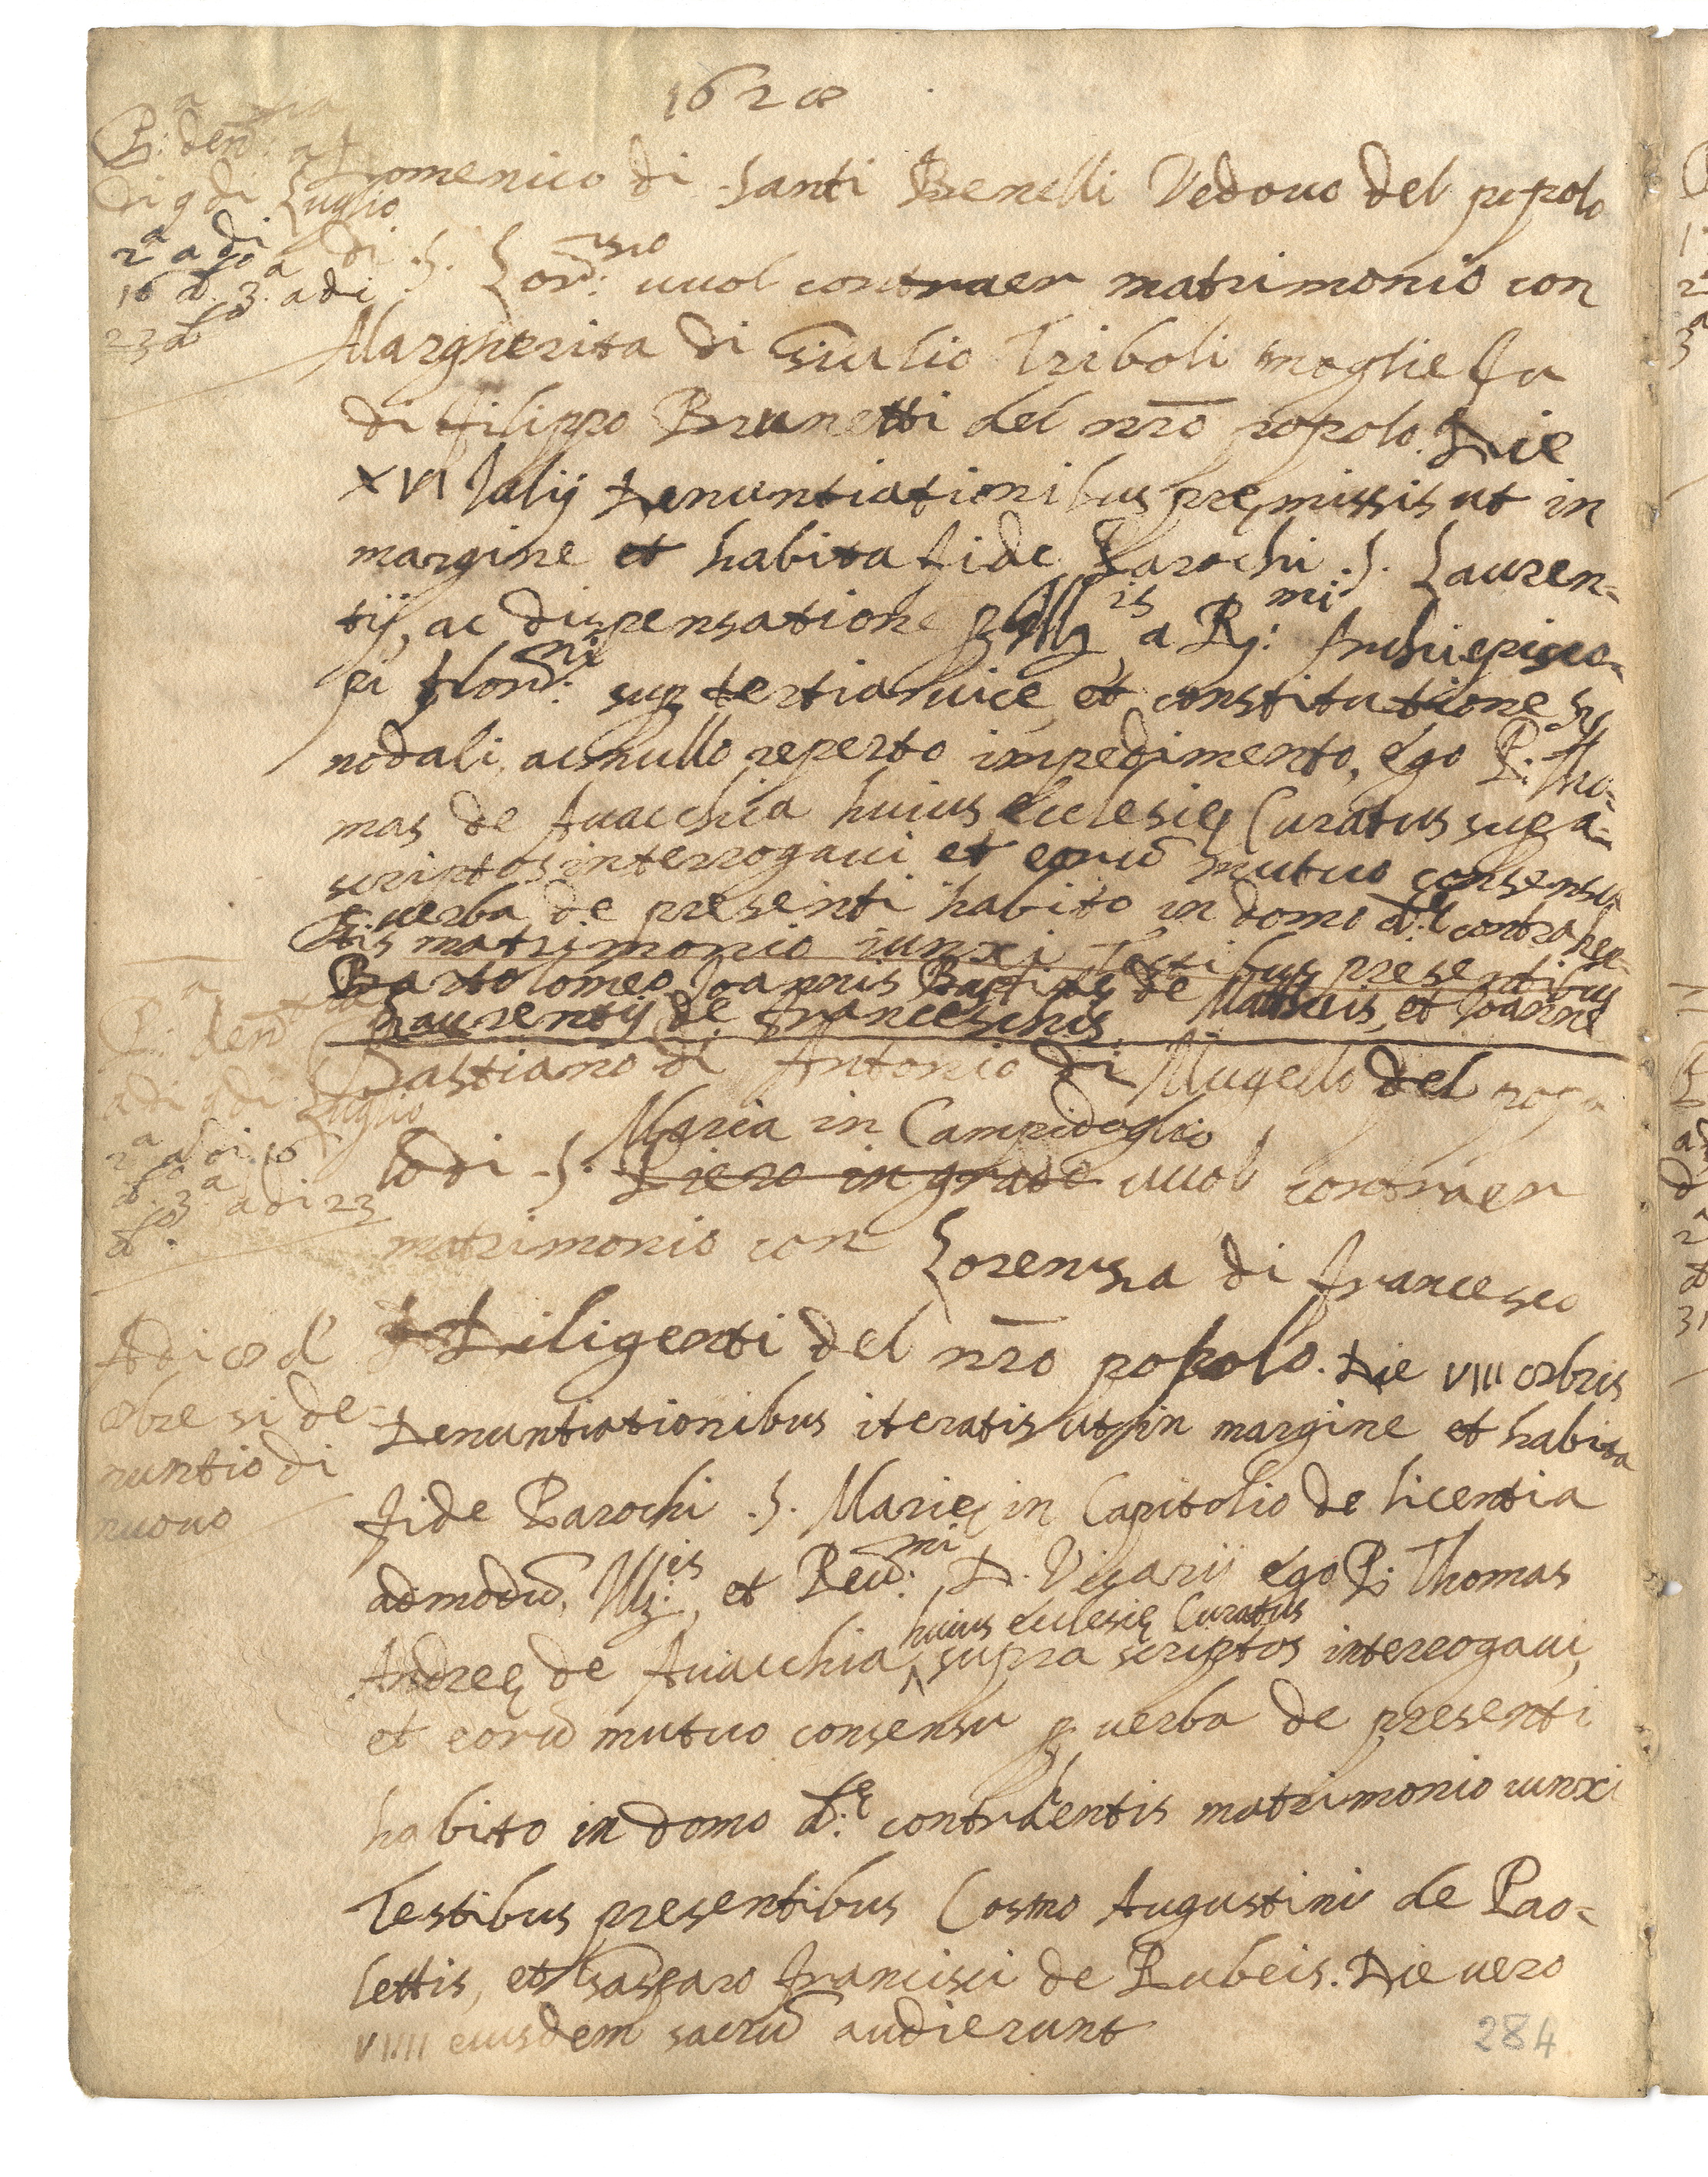 1628
P.ª denª
Di 9 di Luglio
2ª a di
16 d.º 3ª adi
23 d.º
Domenico di Santi Benelli Vedouo del popolo
di S. Lor.zo uuol contraer matrimonio con
Margherita di Giulio Triboli moglie fu
di Filippo Brunetti del nr̄o popolo. Die
XVI Julij Denuntiationibus pręmissis ut in
margine et habita fide Parochi S. Lauren-
tij, ac dispensatione Ill.is a R.mi Archiepisco-
pi Flor.ni sup tertia uice, et constitutione Sy
nodali, ac nullo reperto impedimento, ego P. Tho-
mas de Auacchia huius Ecclesię Curatus supra-
scriptos interrogaui et eorū mutuo consensu
p uerba de presenti habito in domo d. contrahen-
tis matrimonio iunxi Testibus presentibus
Bartolomeo Joannis Baptistę de Mattheis, et Joanne
Laurentij de Franceschis
P.ª denª
adi 9 di Luglio
2ª adi 16
d.º 3ª adi 23
d.º
Bastiano di Antonio di Mugello del popo
lo di S. Maria in Campidoglio
Piero in grado uuol contraer
matrimonio con Lorenza di Francesco
Diligenti del nr̄o popolo. Die VIII 8bris
Adi 8 d'
8bre si de-
nuntio di
nuouo
Denuntiationibus iteratis ut in margine et habita
fide Parochi S. Marię in Capitolio de licentia
admodū Ill.is, et Reu.mi D. Vicarij ego P. Thomas
huius Ecclesię Curatus
Andreę de Auacchia ^ supra scriptos interrogaui,
et eorū mutuo consensu p uerba de presenti
habito in domo d.ę contrahentis matrimonio iunxi
Testibus presentibus Cosmo Augustini de Pao-
lettis, et Gasparo Francisci de Rubeis. Die uero
VIIII eiusdem sacrū audierunt
284